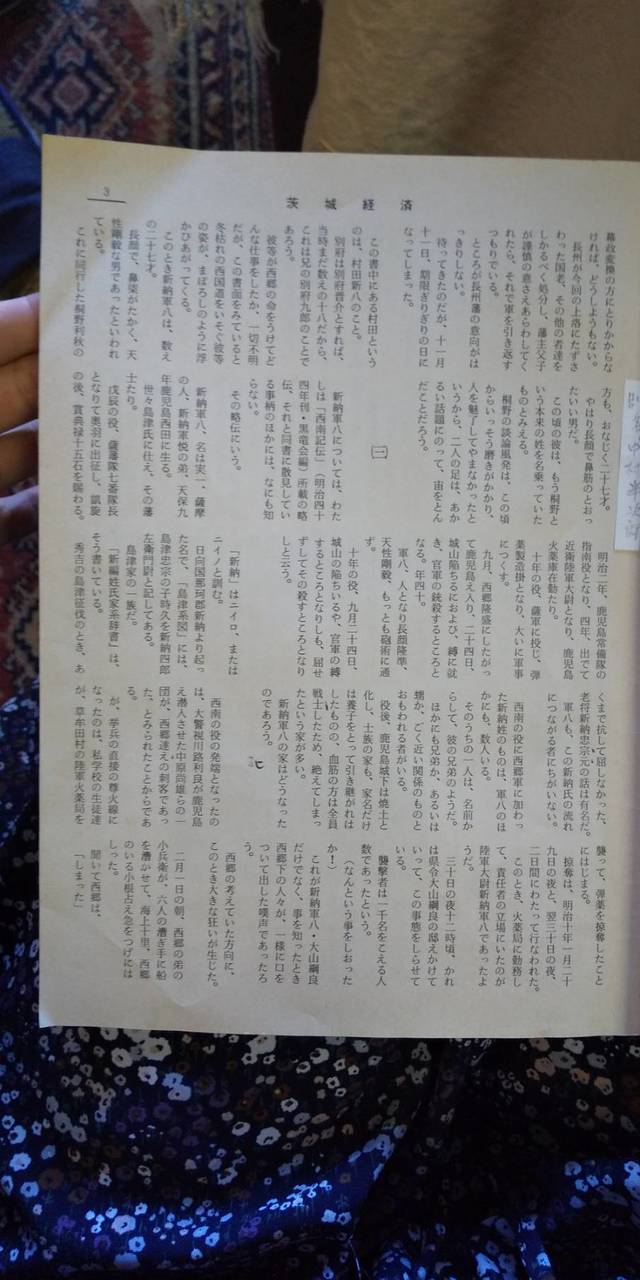 茨城経済
3
幕政変換の方にとりかからな
ければ、どうしようもない。
長州が今回の上洛にたずさ
わった国老、その他の者達を
しかるべく処分し、藩主父子
が謹慎の意さえあらわしてく
れたら、それで軍を引き返す
つもりでいる。
ところが長州藩の意向がは
っきりしない。
待ってきたのだが、十一月
十一日、期限ぎりぎりの日に
なってしまった。
この書中にある村田という
のは、村田新八のこと。
別府は別府晋介とすれば、
当時まだ数えの十八だから、
これは兄の別府九郎のことで
あろう。
彼等が西郷の命をうけてど
んな仕事をしたか、一切不明
だが、この書面をみていると
冬枯れの西国道をいそぐ彼等
の姿が、まぼろしのように浮
かびあがってくる。
このとき新納軍八は、数え
の二十七才。
長顔で、鼻梁がたかく、天
性剛毅な男であったといわれ
ている。
これに同行した桐野利秋の
方も、おなじく二十七才。
やはり長顔で鼻筋のとおっ
たいい男だ。
この頃の彼は、もう桐野と
いう本来の姓を名乗っていた
ものとみえる。
桐野の談論風発は、この頃
からいっそう磨きがかかり、
人を魅了してやまなかったと
いうから、二人の足は、あか
るい話題にのって、宙をとん
だことだろう。
(二)
新納軍八については、わた
しは「西南記伝」(明治四十
四年刊・黒竜会編)所載の略
伝、それと同書に散見してい
る事柄のほかには、なにも知
らない。
その略伝にいう。
新納軍八、名は実一、薩摩
の人、新納軍悦の弟、天保九
年鹿児島西田に生る。
世々島津氏に仕え、その藩
士たり。
戊辰の役、薩藩隊七番隊長
となりて奥羽に出征し、凱旋
の後、賞典禄十五石を賜わる。
明治二年、鹿児島常備隊の
指南役となり、四年、出でて
近衛陸軍大尉となり、鹿児島
火薬庫在勤たり。
十年の役、薩軍に投じ、弾
薬製造掛となり、大いに軍事
につくす。
九月、西郷隆盛にしたがっ
て鹿児島え入り、二十四日、
城山陥ちるにおよび、縛に就
き、官軍の銃殺するところと
なる。年四十。
軍八、人となり長顔隆準、
天性剛毅、もっとも砲術に通
ず。
十年の役、九月二十四日、
城山の陥ちいるや、官軍の縛
するところとなりしも、屈せ
ずしてその殺すところとなり
しと云う。
「新納」はニイロ、または
ニイノと訓む。
日向国那珂郡新納より起っ
た名で、「島津系図」には、
島津忠宗の子時久を新納四郎
左衛門尉と記してある。
島津家の一族だ。
「新編姓氏家系辞書」は、
そう書いている。
秀吉の島津征伐のとき、あ
くまで抗して屈しなかった、
老将新納忠宗元の話は有名だ。
軍八も、この新納氏の流れ
につながる者にちがいない。
西南の役に西郷軍に加わっ
た新納姓のものは、軍八のほ
かにも、数人いる。
そのうちの一人は、名前か
らして、彼の兄弟のようだ。
ほかにも兄弟か、あるいは
甥か、ごく近い関係のものと
おもわれる者がいる。
役後、鹿児島城下は焼土と
化し、士族の家も、家名だけ
は養子をとって引き継がれは
したものの、血筋の方は全員
戦士したため、絶えてしまっ
たという家が多い。
新納軍八の家はどうなった
のであろう。
西南の役の発端となったの
は、大警視川路利良が鹿児島
え潜入させた中原尚雄らの一
団が、西郷達えの刺客であっ
た、とみられたことからであ
る。
が、挙兵の直接の導火線に
なったのは、私学校の生徒達
が、草牟田村の陸軍火薬局を
襲って、弾薬を掠奪したこと
にはじまる。
掠奪は、明治十年一月二十
九日の夜と、翌三十日の夜、
二日間にわたって行なわれた。
このとき、火薬局に勤務し
て、責任者の立場にいたのが
陸軍大尉新納軍八であったよ
うだ。
三十日の夜十二時頃、かれ
は県令大山綱良の邸えかけて
いって、この事態をしらせて
いる。
襲撃者は一千名をこえる人
数であったという。
(なんという事をしおった
か!)
これが新納軍八・大山綱良
だけでなく、事を知ったとき
西郷下の人々が、一様に口を
ついて出した嘆声であったろ
う。
西郷の考えていた方向に、
このとき大きな狂いが生じた。
二月一日の朝、西郷の弟の
小兵衛が、六人の漕ぎ手に船
を漕がせて、海上十里、西郷
のいる小根占え急をつげには
しった。
聞いて西郷は、
「しまった」